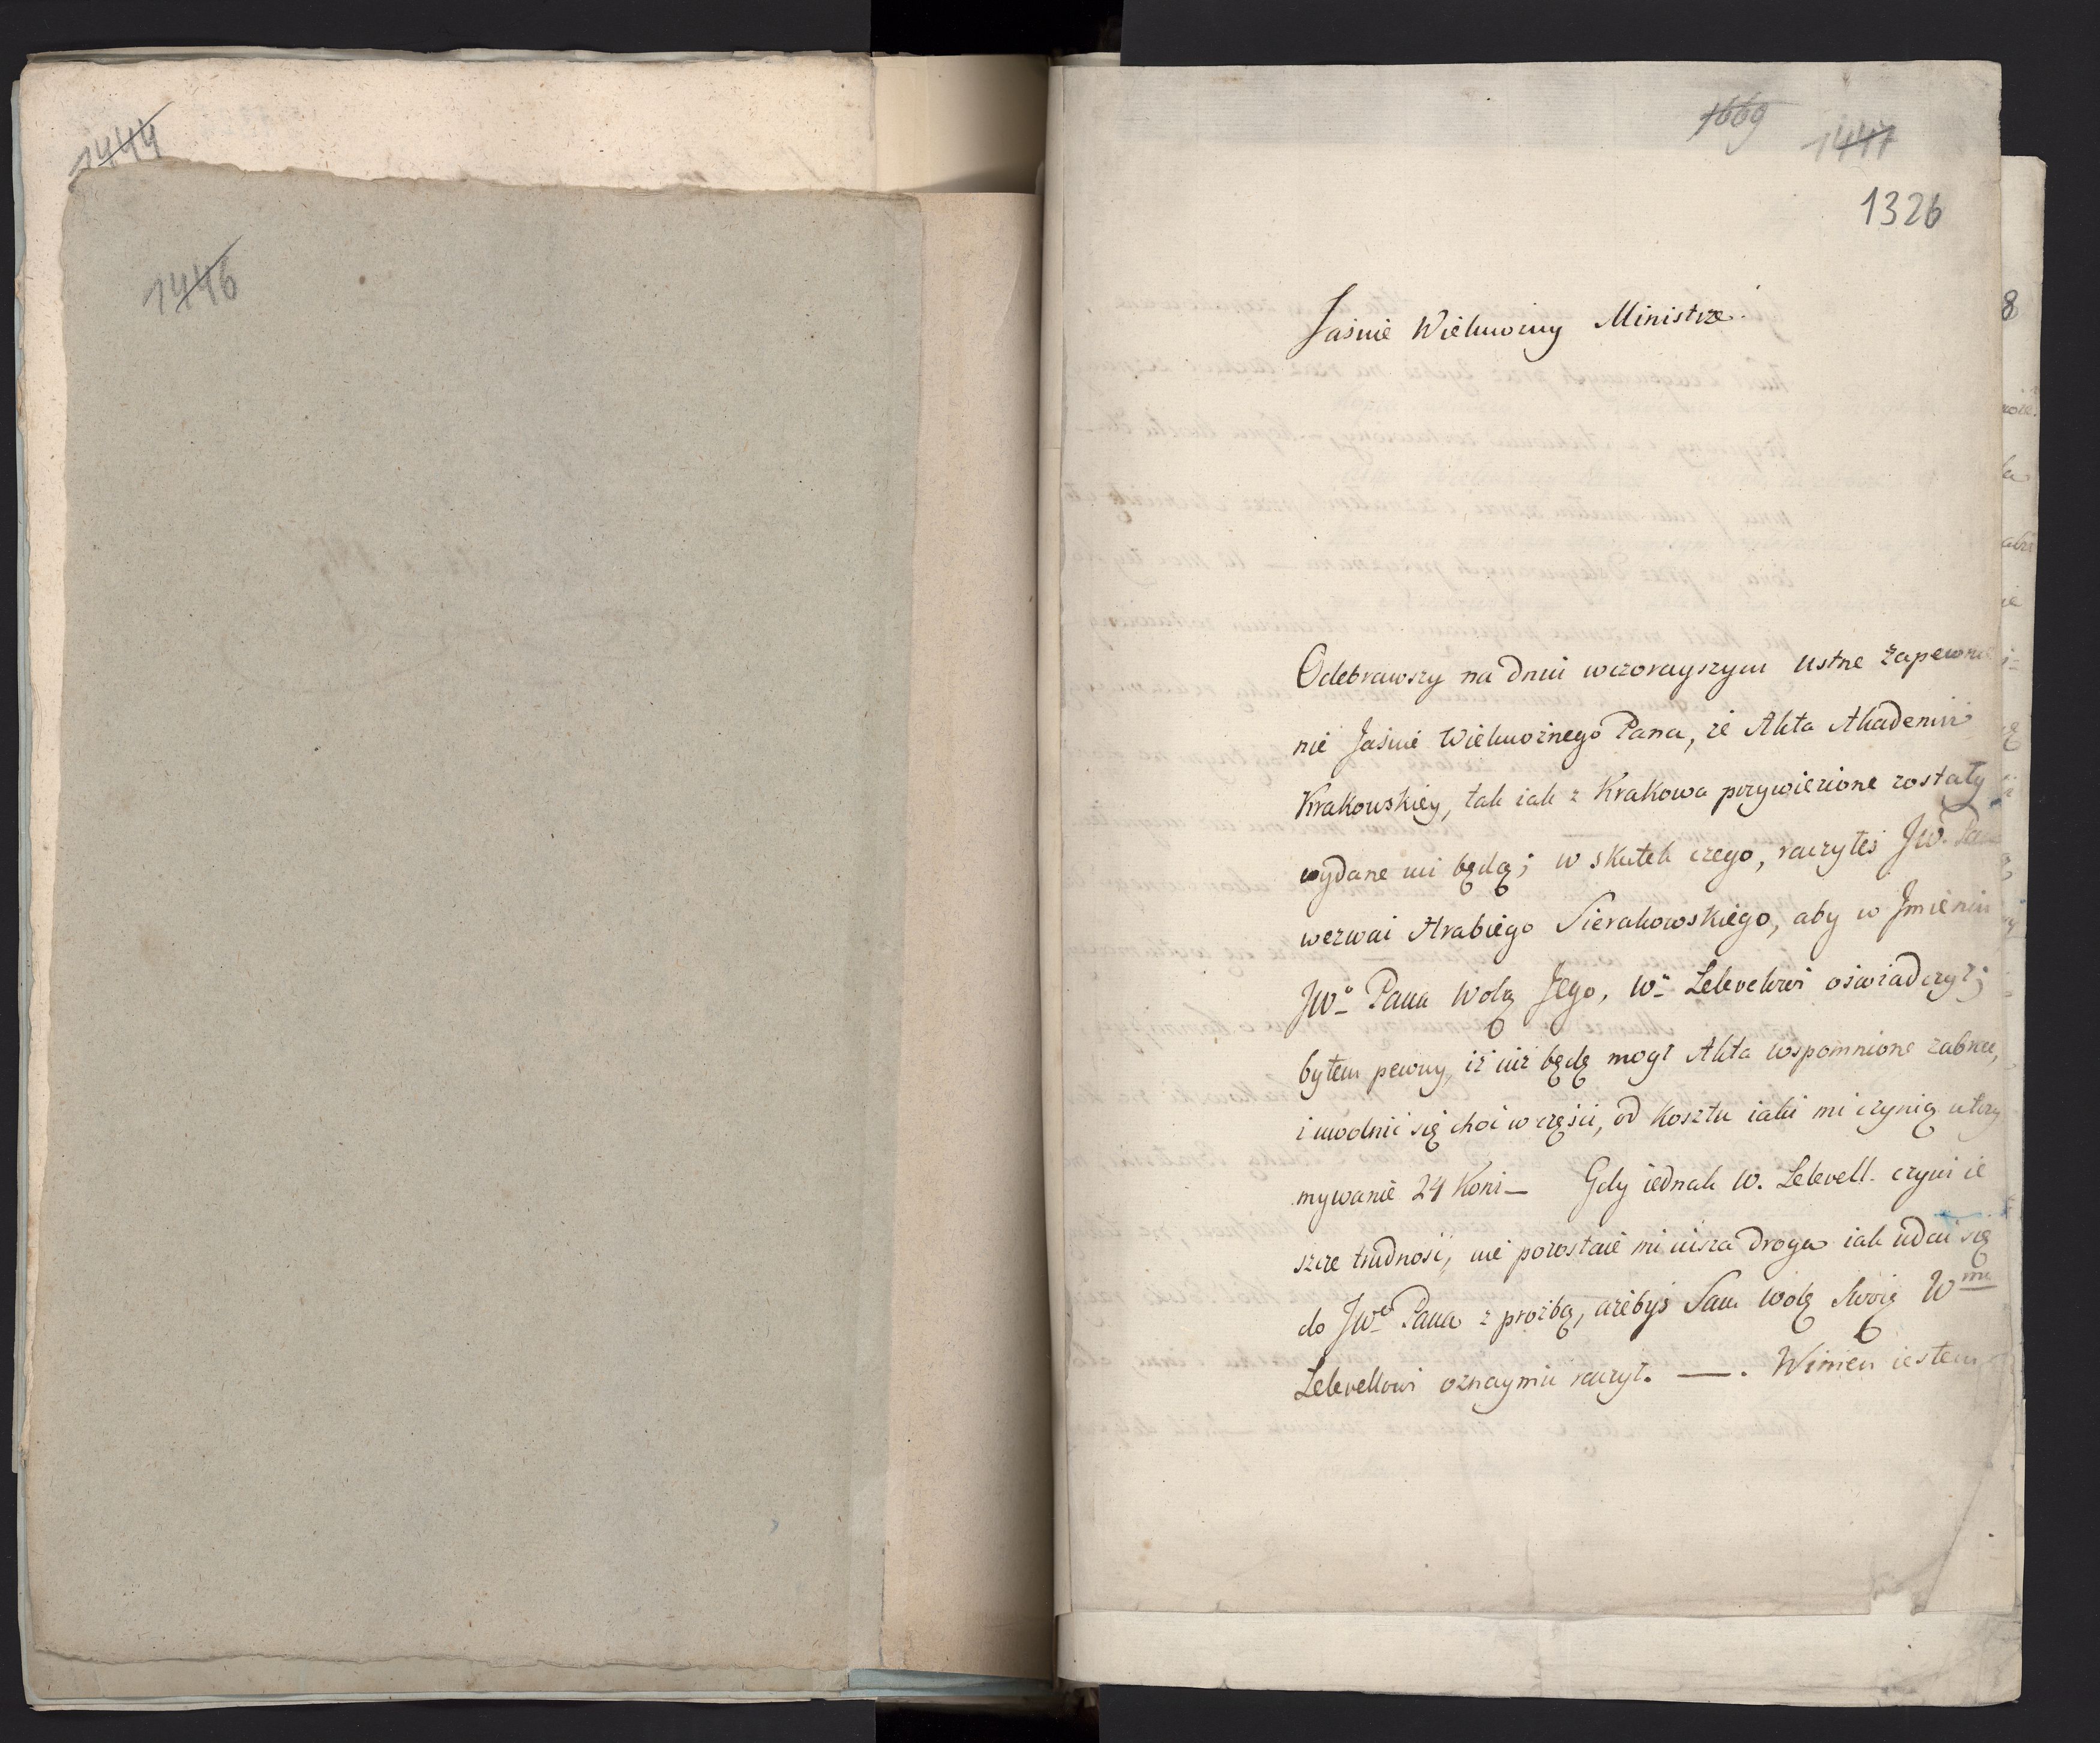 1444
1446
1669
1447
1326
Jaśnie Wielmożny Ministrze.
Odebrawszy na dniu wczorayszym ustne Zapewnie
nie Jaśnie Wielmożnego Pana, że Akta Akademii
Krakowskiey, tak iak z Krakowa przywiezione zostały
wydane mi będą; w skutek czego, raczyłeś JW. Pan
wezwać Hrabiego Sierakowskiego, aby w Jmieniu
JWo Pana Wolą Jego, Wu Lelevelowi oświadczył;
byłem pewny, iż iuż będę mogł Akta wspomnione zabrać,
i uwolnić się choć w części, od kosztu iaki mi czynią utrzy
mywanie 24 Koni — Gdy iednak W. Lelevell czyni ie
szcze trudność, nie pozostaie mi insza droga iak udać się
do JWo Pana z proźbą, ażebyś Sam Wolę Swoię Wmu
Lelevellowi oznaymić raczył. —. Winien iestem
8